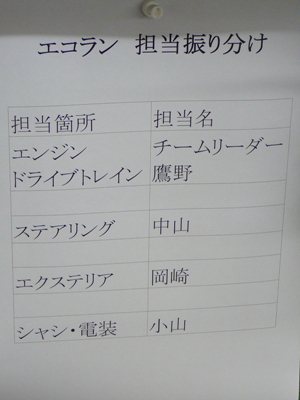 エコラン　担当振り分け
担当箇所　担当名
エンジン　チームリーダー
ドライブトレイン　鷹野
ステアリング　中山
エクステリア　岡崎
シャシ・電装　小山